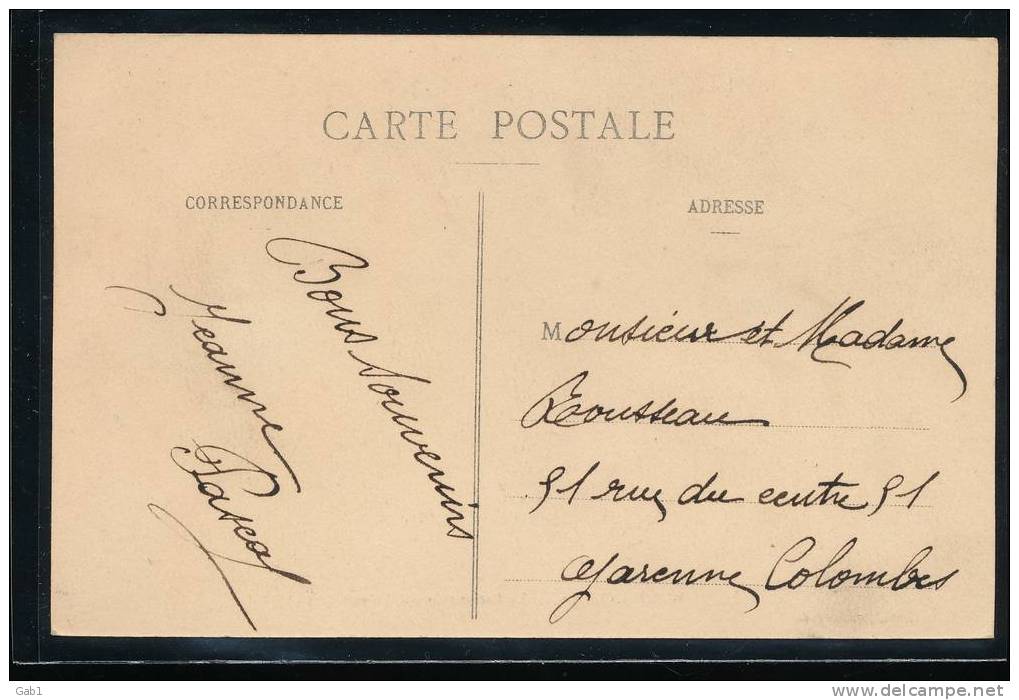 CARTE POSTALE
CORRESPONDANCE
Bons Souvenirs
Jeanne
Pascal
ADRESSE
Monsieur et Madame
Rousseau
51 rue du centre 51
Garenne Colombes
Gab1
www.delcampe.net